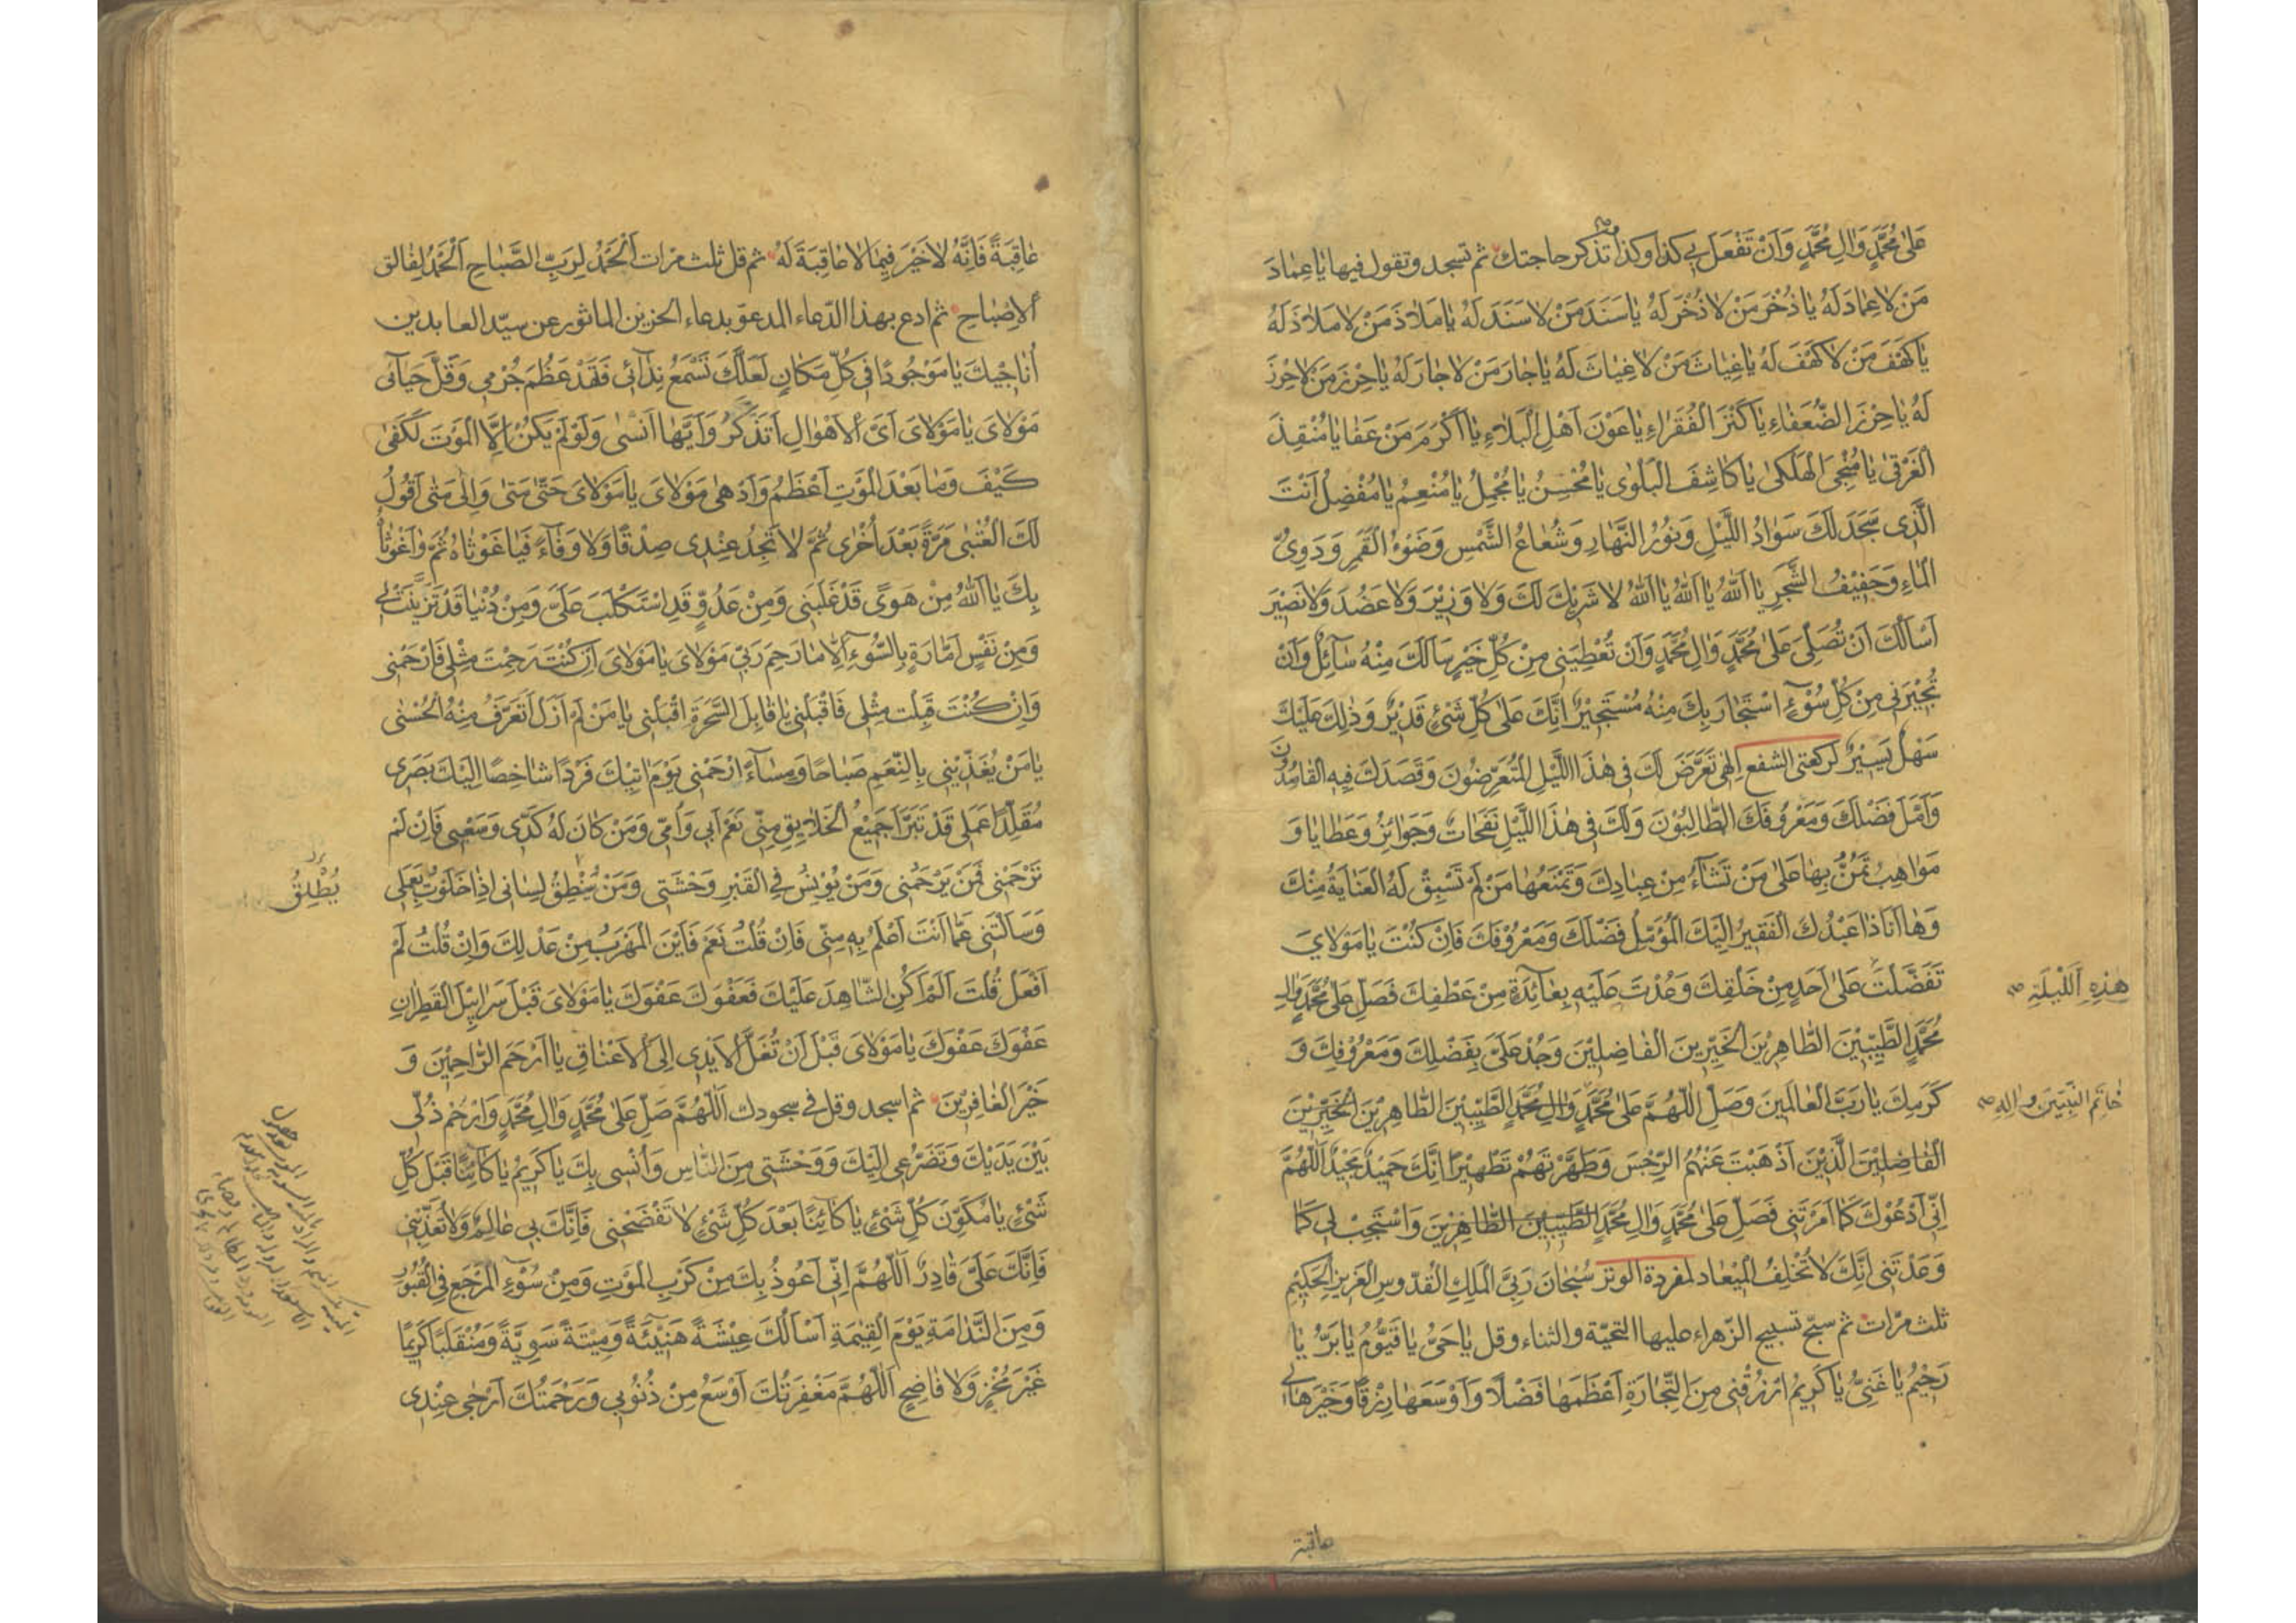 عَلٰى مُحَمَّدٍ وَاٰلِ مُحَمَّدٍ وَاَنْ تَفْعَلَ بِي كذا وكذا تذكر حاجتك ثم تسجد وتقول فيها يٰا عِمٰادَ
مَنْ لاٰ عِمٰادَ لَهُ يٰا ذُخْرَ مَنْ لاٰ ذُخْرَ لَهُ يٰا سَنَدَ مَنْ لاٰ سَنَدَ لَهُ يٰا مَلاٰذَ مَنْ لاٰ مَلاٰذَ لَهُ
يٰا كَهْفَ مَنْ لاٰ كَهْفَ لَهُ يٰا غِيٰاثَ مَنْ لاٰ غِيٰاثَ لَهُ يٰا جٰارَ مَنْ لاٰ جٰارَ لَهُ يٰا حِرْزَ مَنْ لاٰ حِرْزَ
لَهُ يٰا حِرْزَ الضُّعَفٰاءِ يٰا كَنْزَ الْفُقَرٰاءِ يٰا عَوْنَ اَهْلِ الْبَلاٰءِ يٰا اَكْرَمَ مَنْ عَفٰا يٰا مُنْقِذَ
الْغَرْقٰى يٰا مُنْجِىَ الْهَلْكٰى يٰا كٰاشِفَ الْبَلْوٰى يٰا مُحْسِنُ يٰا مُجْمِلُ يٰا مُنْعِمُ يٰا مُفْضِلُ اَنْتَ
الَّذِى سَجَدَ لَكَ سَوٰادُ اللَّيْلِ وَنُوْرُ النَّهٰارِ وَشُعٰاعُ الشَّمْسِ وَضَوْءُ الْقَمَرِ وَدَوِىُّ
الْمٰاءِ وَحَفِيْفُ الشَّجَرِ يٰا اَللّٰهُ يٰا اَللّٰهُ يٰا اَللّٰهُ لاٰ شَرِيْكَ لَكَ وَلاٰ وَزِيْرَ وَلاٰ عَضُدَ وَلاٰ نَصِيْرَ
اَسْاَلُكَ اَنْ تُصَلِّىَ عَلٰى مُحَمَّدٍ وَاٰلِ مُحَمَّدٍ وَاَنْ تُعْطِيَنِى مِنْ كُلِّ خَيْرٍ سَاَلَكَ مِنْهُ سٰآئِلٌ وَاَنْ
تُجِيْرَنِى مِنْ كُلِّ سُوْءٍ اسْتَجٰارَ بِكَ مِنْهُ مُسْتَجِيْرٌ اِنَّكَ عَلٰى كُلِّ شَىْءٍ قَدِيْرٌ وَذٰلِكَ عَلَيْكَ
سَهْلٌ يَسِيْرٌ لركعتى الشفع اِلٰهِى تَعَرَّضَ لَكَ فِى هٰذَا اللَّيْلِ الْمُتَعَرِّضُونَ وَقَصَدَكَ فِيهِ الْقٰاصِدُونَ
وَاَمَّلَ فَضْلَكَ وَمَعْرُوْفَكَ الطّٰالِبُوْنَ وَلَكَ فِى هٰذَا اللَّيْلِ نَفَحٰاتٌ وَجَوٰائِزُ وَعَطٰايٰا وَ
مَوٰاهِبُ تَمُنُّ بِهٰا عَلٰى مَنْ تَشٰآءُ مِنْ عِبٰادِكَ وَتَمْنَعُهٰا مَنْ لَمْ تَسْبِقْ لَهُ الْعِنٰايَةُ مِنْكَ
وَهٰا اَنَا ذٰا عَبْدُكَ الْفَقِيْرُ اِلَيْكَ الْمُؤَمِّلُ فَضْلَكَ وَمَعْرُوْفَكَ فَاِنْ كُنْتَ يٰا مَوْلاٰيَ
تَفَضَّلْتَ عَلٰى اَحَدٍ مِنْ خَلْقِكَ وَعُدْتَ عَلَيْهِ بِعٰآئِدَةٍ مِنْ عَطْفِكَ فَصَلِّ عَلٰى مُحَمَّدٍ وَاٰلِ
هٰذِهِ اللَّيْلَةِ
مُحَمَّدٍ الطَّيِّبِيْنَ الطّٰاهِرِيْنَ الْخَيِّرِينَ الْفٰاضِلِيْنَ وَجُدْ عَلَىَّ بِفَضْلِكَ وَمَعْرُوْفِكَ وَ
كَرَمِكَ يٰا رَبَّ الْعٰالَمِينَ وَصَلِّ اللّٰهُمَّ عَلٰى مُحَمَّدٍ وَاٰلِ مُحَمَّدٍ الطَّيِّبِيْنَ الطّٰاهِرِيْنَ الْخَيِّرِيْنَ
خٰاتَمِ النَّبِيّينَ وَاٰلِهِ
الْفٰاضِلِيْنَ الَّذِيْنَ اَذْهَبْتَ عَنْهُمُ الرِّجْسَ وَطَهَّرْتَهُمْ تَطْهِيْرًا اِنَّكَ حَمِيْدٌ مَجِيْدٌ اَللّٰهُمَّ
اِنِّى اَدْعُوْكَ كَمٰا اَمَرْتَنِى فَصَلِّ عَلٰى مُحَمَّدٍ وَاٰلِ مُحَمَّدٍ الطَّيِّبِيْنَ الطّٰاهِرِيْنَ وَاسْتَجِبْ لِى كَمٰا
وَعَدْتَنِى اِنَّكَ لاٰ تُخْلِفُ الْمِيْعٰادَ لمفردة الوتر سُبْحٰانَ رَبِّىَ الْمَلِكِ الْقُدُّوسِ الْعَزِيزِ الْحَكِيْمِ
ثلث مرّات ثم سبّح تسبيح الزّهراء عليها التحيّة والثناء وقل يٰا حَىُّ يٰا قَيُّوْمُ يٰا بَرُّ يٰا
رَحِيْمُ يٰا غَنِىُّ يٰا كَرِيْمُ ارْزُقْنِى مِنَ التِّجٰارَةِ اَعْظَمَهٰا فَضْلاً وَاَوْسَعَهٰا رِزْقًا وَخَيْرَهٰا لِى
عاقبة
عٰاقِبَةً فَاِنَّهُ لاٰ خَيْرَ فِيمٰا لاٰ عٰاقِبَةَ لَهُ ثم قل ثلث مرّات اَلْحَمْدُ لِرَبِّ الصَّبٰاحِ اَلْحَمْدُ لِفٰالِقِ
الْاِصْبٰاحِ ثم ادع بهذا الدّعاء المدعوّ بدعاء الحزين الماثور عن سيّد العابدين
اُنٰاجِيْكَ يٰا مَوْجُودًا فِى كُلِّ مَكٰانٍ لَعَلَّكَ تَسْمَعُ نِدٰآئِى فَقَدْ عَظُمَ جُرْمِى وَقَلَّ حَيٰآئِى
مَوْلاٰىَ يٰا مَوْلاٰىَ اَىَّ الْاَهْوٰالِ اَتَذَكَّرُ وَاَيَّهٰا اَنْسٰى وَلَوْ لَمْ يَكُنْ اِلَّا الْمَوْتُ لَكَفٰى
كَيْفَ وَمٰا بَعْدَ الْمَوْتِ اَعْظَمُ وَاَدْهٰى مَوْلاٰىَ يٰا مَوْلاٰىَ حَتّٰى مَتٰى وَاِلٰى مَتٰى اَقُولُ
لَكَ الْعُتْبٰى مَرَّةً بَعْدَ اُخْرٰى ثُمَّ لاٰ تَجِدُ عِنْدِى صِدْقًا وَلاٰ وَفٰآءً فَيٰا غَوْثٰاهُ ثُمَّ وٰا غَوْثٰاهُ
بِكَ يٰا اَللّٰهُ مِنْ هَوًى قَدْ غَلَبَنِى وَمِنْ عَدُوٍّ قَدِ اسْتَكْلَبَ عَلَىَّ وَمِنْ دُنْيٰا قَدْ تَزَيَّنَتْ لِى
وَمِنْ نَفْسٍ اَمّٰارَةٍ بِالسُّوْءِ اِلاّٰ مٰا رَحِمَ رَبِّى مَوْلاٰىَ يٰا مَوْلاٰىَ اِنْ كُنْتَ رَحِمْتَ مِثْلِى فَارْحَمْنِى
وَاِنْ كُنْتَ قَبِلْتَ مِثْلِى فَاقْبَلْنِى يٰا قٰابِلَ السَّحَرَةِ اقْبَلْنِى يٰا مَنْ لَمْ اَزَلْ اَتَعَرَّفُ مِنْهُ الْحُسْنٰى
يٰا مَنْ يُغَذِّيْنِى بِالنِّعَمِ صَبٰاحًا وَمَسٰآءً ارْحَمْنِى يَوْمَ اٰتِيْكَ فَرْدًا شٰاخِصًا اِلَيْكَ بَصَرِى
مُقَلَّدًا عَمَلِى قَدْ تَبَرَّاَ جَمِيْعُ الْخَلاٰئِقِ مِنِّى نَعَمْ اَبِى وَاُمِّى وَمَنْ كٰانَ لَهُ كَدِّى وَسَعْيِى فَاِنْ لَمْ
تَرْحَمْنِى فَمَنْ يَرْحَمُنِى وَمَنْ يُوْنِسُ فِى الْقَبْرِ وَحْشَتِى وَمَنْ يُنْطِقُ لِسٰانِى اِذٰا خَلَوْتُ بِعَمَلِى
يُطْلِقُ
وَسَاَلْتَنِى عَمّٰا اَنْتَ اَعْلَمُ بِهِ مِنِّى فَاِنْ قُلْتُ نَعَمْ فَاَيْنَ الْمَهْرَبُ مِنْ عَدْلِكَ وَاِنْ قُلْتُ لَمْ
اَفْعَلْ قُلْتَ اَلَمْ اَكُنِ الشّٰاهِدَ عَلَيْكَ فَعَفْوَكَ عَفْوَكَ يٰا مَوْلاٰىَ قَبْلَ سَرٰابِيْلِ الْقَطِرٰانِ
عَفْوَكَ عَفْوَكَ يٰا مَوْلاٰىَ قَبْلَ اَنْ تُغَلَّ الْاَيْدِى اِلَى الْاَعْنٰاقِ يٰا اَرْحَمَ الرّٰاحِمِيْنَ وَ
خَيْرَ الْغٰافِرِيْنَ ثم اسجد وقل فى سجودك اَللّٰهُمَّ صَلِّ عَلٰى مُحَمَّدٍ وَاٰلِ مُحَمَّدٍ وَارْحَمْ ذُلِّى
بَيْنَ يَدَيْكَ وَتَضَرُّعِى اِلَيْكَ وَوَحْشَتِى مِنَ النّٰاسِ وَاُنْسِى بِكَ يٰا كَرِيْمُ يٰا كٰائِنًا قَبْلَ كُلِّ
شَىْءٍ يٰا مُكَوِّنَ كُلِّ شَىْءٍ يٰا كٰائِنًا بَعْدَ كُلِّ شَىْءٍ لاٰ تَفْضَحْنِى فَاِنَّكَ بِى عٰالِمٌ وَلاٰ تُعَذِّبْنِى
فَاِنَّكَ عَلَىَّ قٰادِرٌ اَللّٰهُمَّ اِنِّى اَعُوذُ بِكَ مِنْ كَرْبِ الْمَوْتِ وَمِنْ سُوْءِ الْمَرْجَعِ فِى الْقُبُوْرِ
وَمِنَ النَّدٰامَةِ يَوْمَ الْقِيٰمَةِ اَسْاَلُكَ عِيْشَةً هَنِيْئَةً وَمِيْتَةً سَوِيَّةً وَمُنْقَلَبًا كَرِيْمًا
غَيْرَ مُخْزٍ وَلاٰ فٰاضِحٍ اَللّٰهُمَّ مَغْفِرَتُكَ اَوْسَعُ مِنْ ذُنُوْبِى وَرَحْمَتُكَ اَرْجٰى عِنْدِى